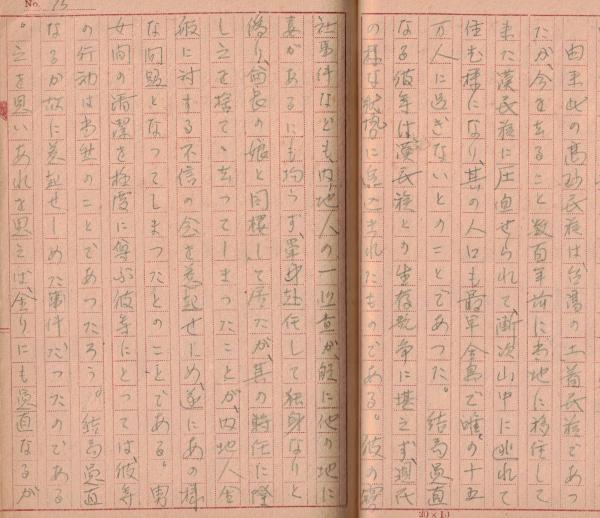 No. 15
由来此の高砂民族は台湾の土着民族であつ
たが、今を去ること数百年前に当地に移住して
来た漢民族に圧迫せられて、漸次山中に逃れて
住む様になり、其の人口も最早全島で唯の十五
万人に過ぎないとのことであつた。結局愚直
なる彼等は漢民族との生存競争に堪えず、退
の様な状態に
されたものである。彼の霧
社事件なども内地人の一巡査が、既に他の地に
妻があるにも拘らず、単身赴任して独身なりと
偽り、酋長の娘と同棲して居たが、其の転任に際
し之を捨てゝ去つてしまつたことが、内地人全
般に対する不信の念を惹起せしめ、遂にあの様
な問題となつてしまつたとのことである。男
女間の清潔を極度に尊ぶ彼等にとつては、彼等
の行動は当然のことであつたろう。結局愚直
なるが故に惹起せしめた事件だつたのである
。之を思いあれを思えば、余りにも愚直なるが
20×10